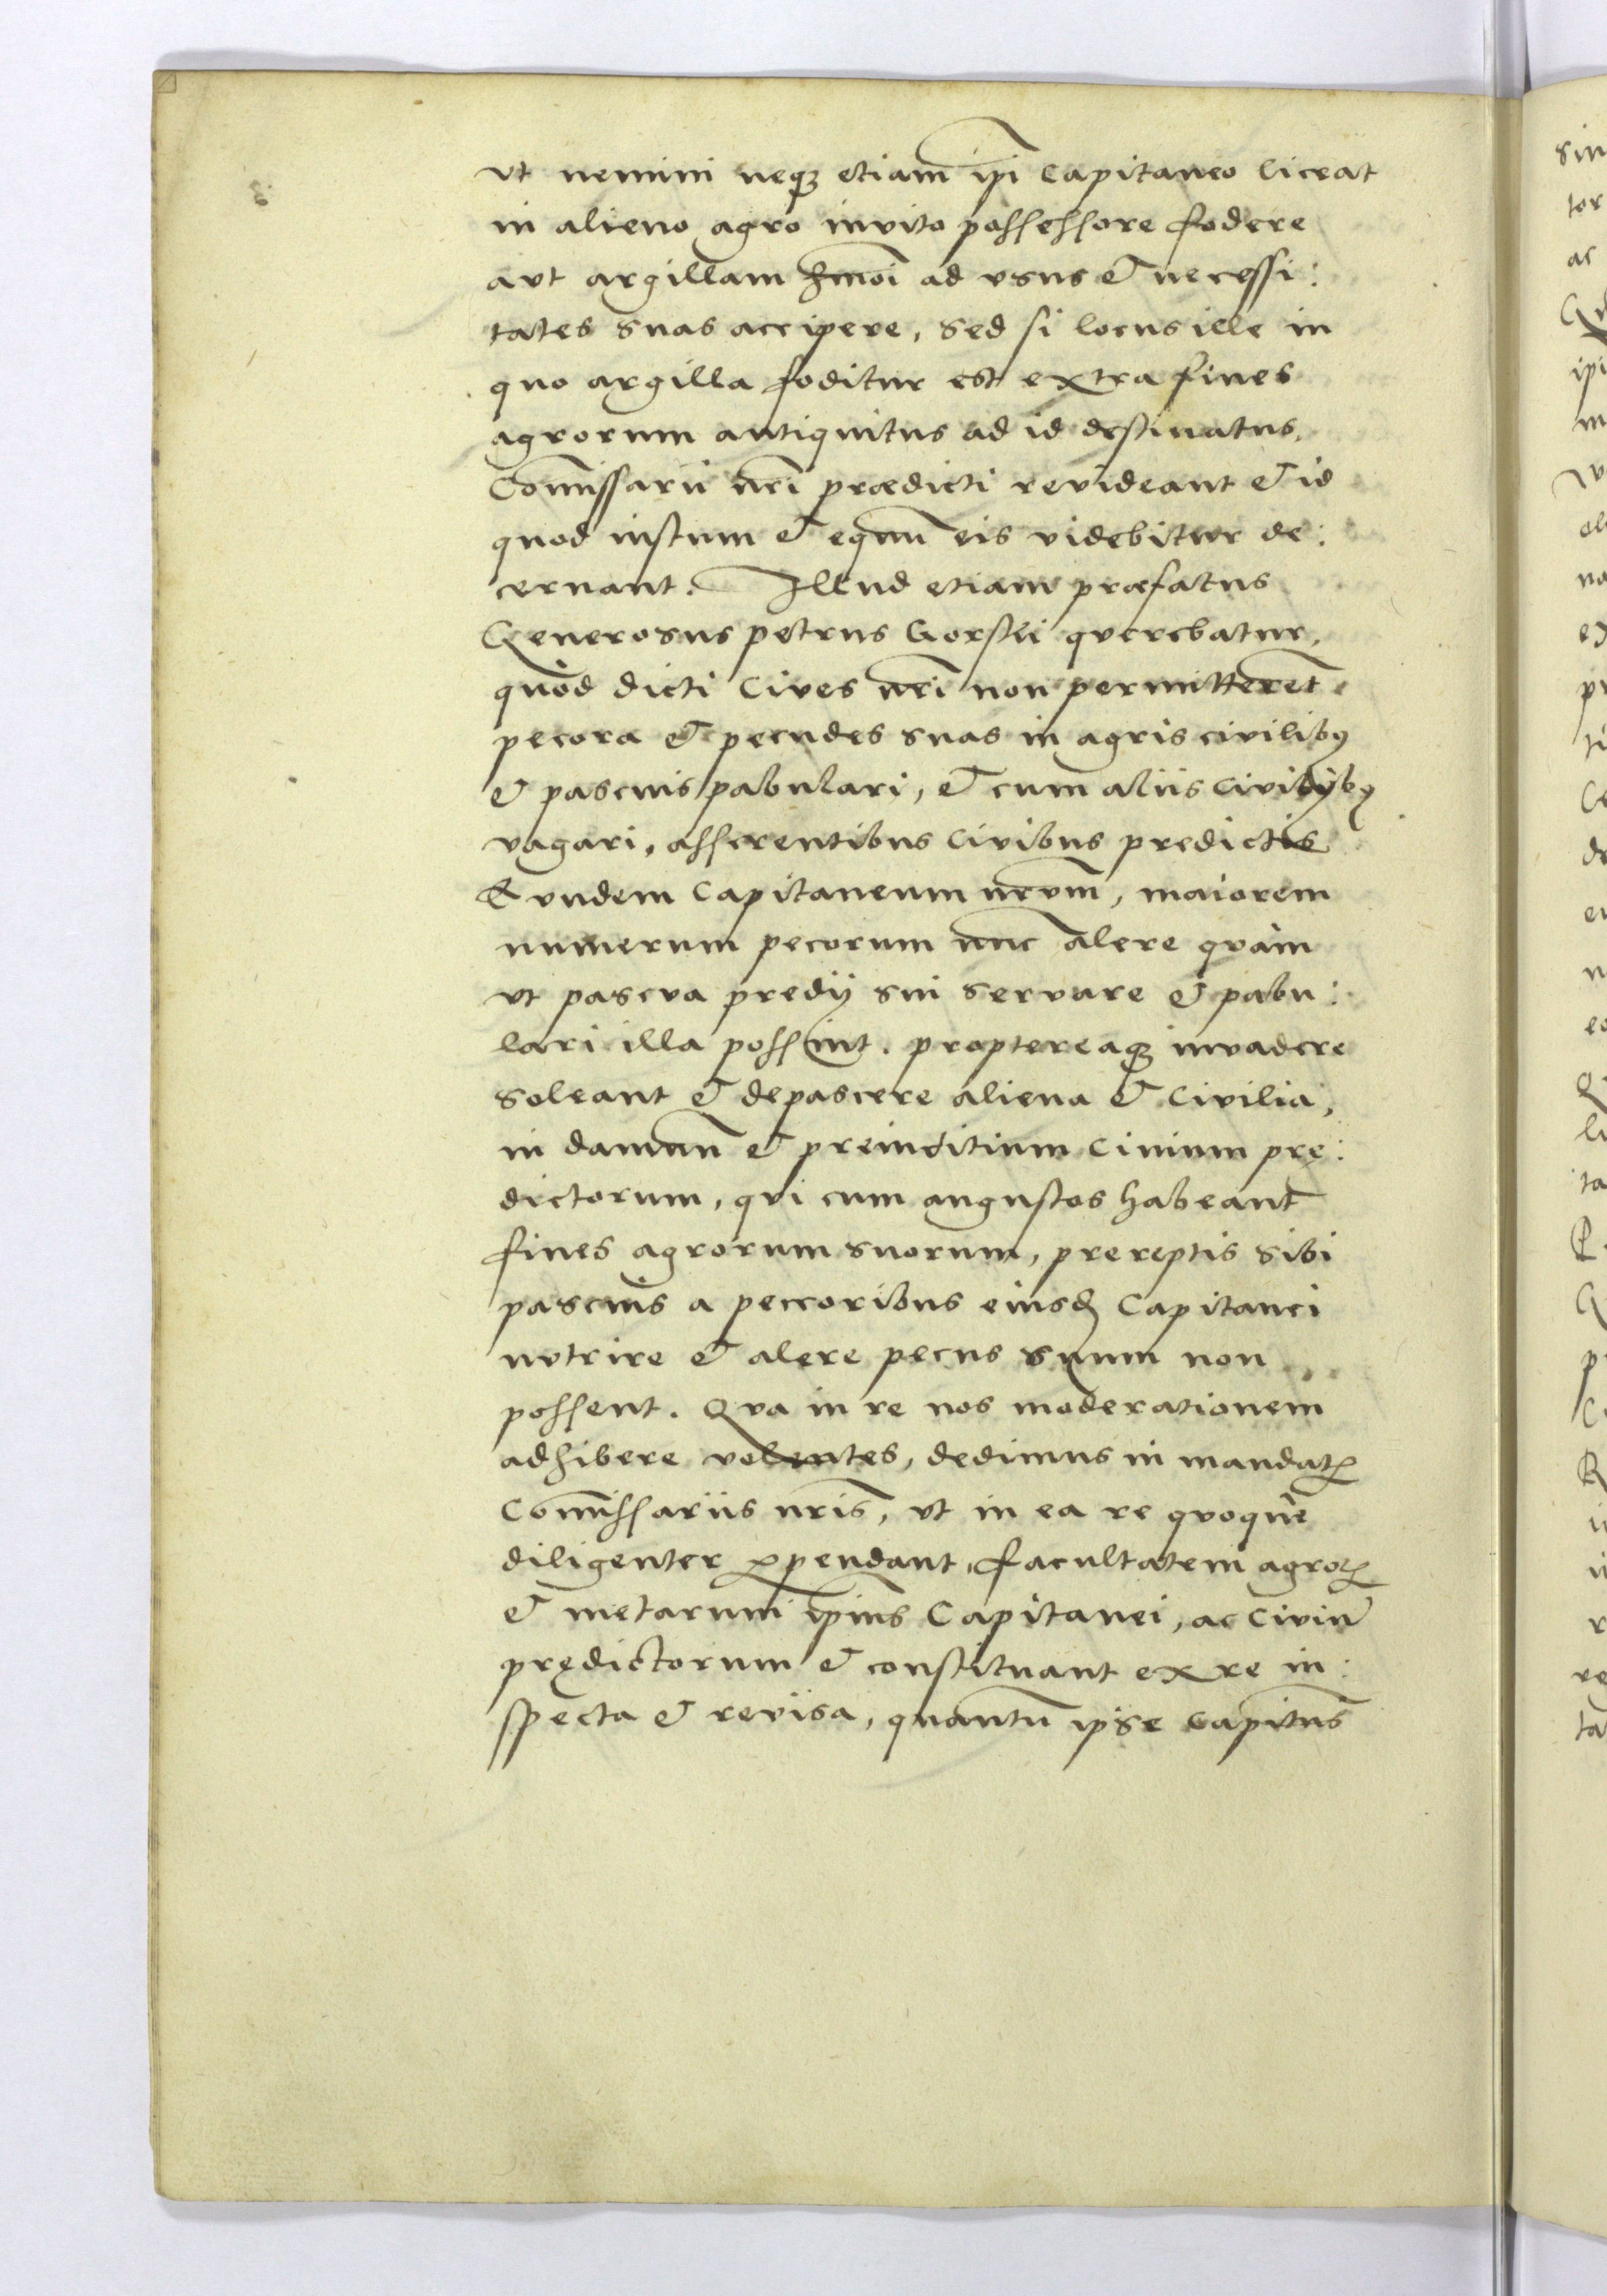 vt nemini neqꝫ etiam ipi Capitaneo liceat
in alieno agro invito possessore fodere
avt argillam hmoi ad vsus et necessi:
tates suas accipere, Sed si locus ille in
quo argilla foditur est extra fines
agrorum antiquitus ad id destinatus,
Com̃issarii nri prædicti revideant et id
quod iustum et equm̃ eis videbitur de:
cernant. Illud etiam præfatus
Generosus petrus Gorskii querebatur,
quòd dicti Cives nri non permitteret
pecora et pecudes suas in agris civilibꝰ
et pascuis pabulari, et cum aliis Civibꝰ
vagari, asserentibus Civibus predictis
Eundem Capitaneum nrvm, maiorem
numerum pecorum nnc alere quàm
vt pascva predij sui servare et pabu:
lari illa possint. proptereaqꝫ invadere
soleant et depascere aliena et Civilia,
in damnũ et preiuditium Civium prę:
dictorum, qvi cum angustos habeant
fines agrorum suorum, prereptis sibi
pascuis a peccoribus eiusd Capitanei
nvtrire et alere pecus suum non
possent. Qva in re nos moderationem
adhibere volentes, dedimus in mandatꝭ
Com̃issariis nris, vt in ea re qvoque
diligenter ꝑpendant, facultatem agroꝝ
et metarum ipius Capitanei, ac Civiũ
prędictorum et constituant ex re in:
specta et revisa, quantũ ipse Capitnus